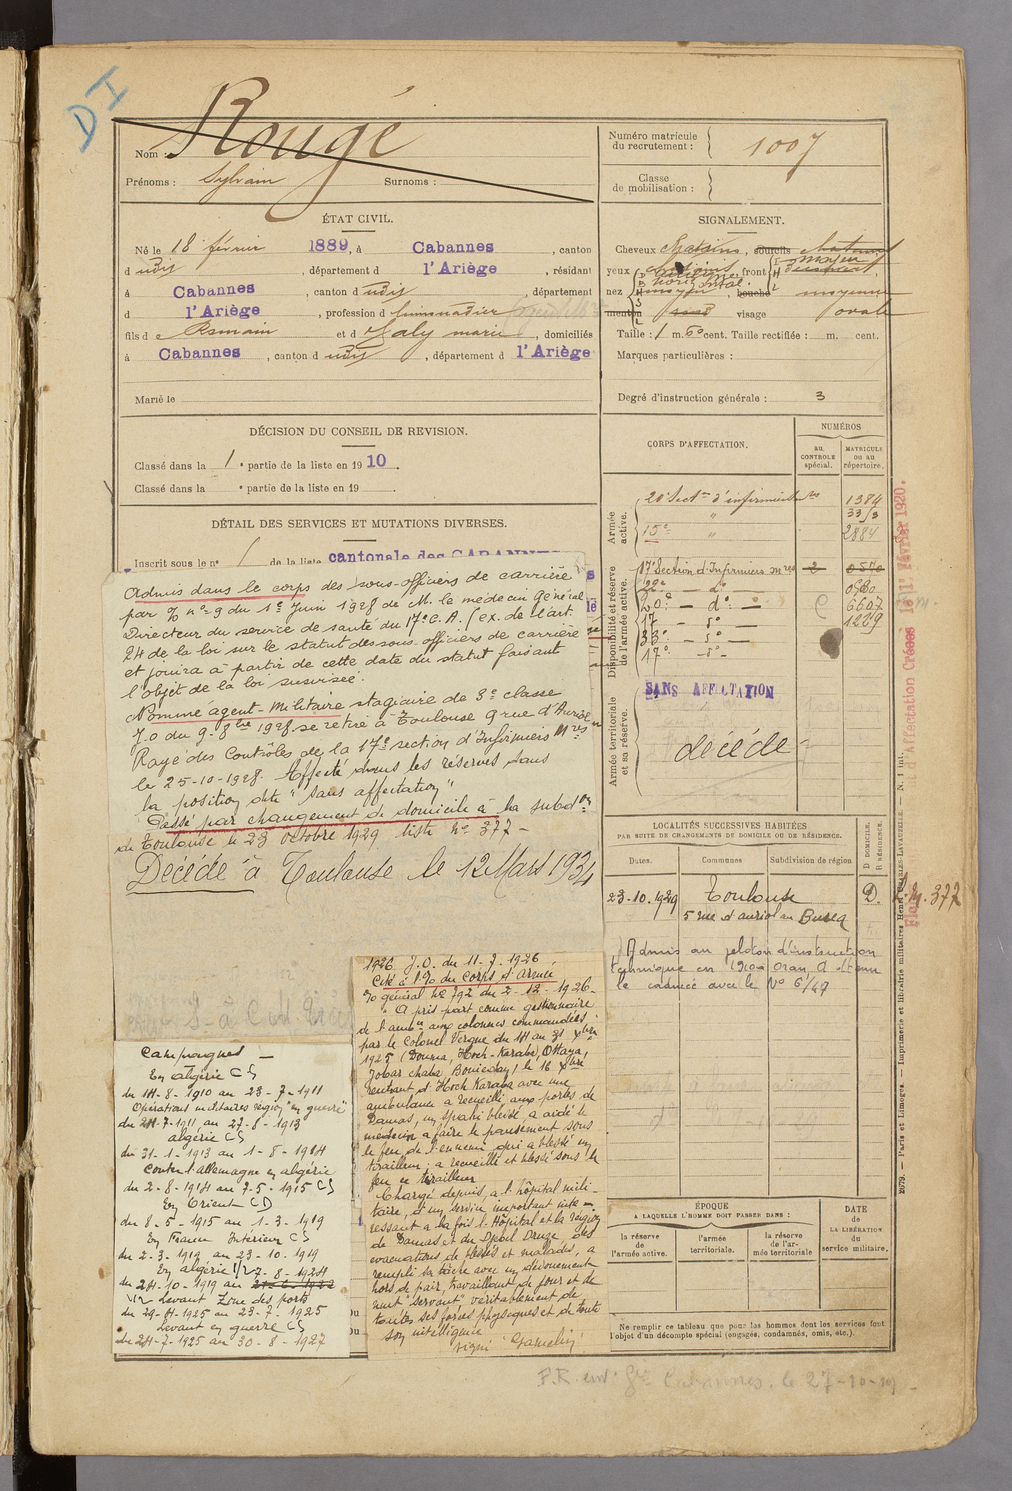 D I
Nom : Rougé
Prénoms : Sylvain Surnoms :
Numéro matricule
du recrutement : 1007
Classe
de mobilisation :
ÉTAT CIVIL.
Né le 18 février 1889, à Cabannes, canton
d udit, département d l'Ariège, résidant
à Cabannes, canton d udit, département
d l'Ariège, profession d limonadier
fils d e Romain et d Galy marie, domiciliés
à Cabannes, canton d udit, département d l'Ariège
Marié le
SIGNALEMENT.
Cheveux chatains, sourcils chatains
yeux, front moyen
horizontal.
nez moyen bouche moyenne
menton rond visage ovale
Taille : 1 m. 60 cent. Taille rectifiée : m. cent.
Marques particulières :
Degré d'instruction générale : 3
DÉCISION DU CONSEIL DE REVISION.
Classé dans la 1e partie de la liste en 1910.
Classé dans la e partie de la liste en 19 .
DÉTAIL DES SERVICES ET MUTATIONS DIVERSES.
Inscrit sous le n° 1 de la liste cantonale des CABANNES
Admis dans le corps des sous-officiers de carrière
par J.O n° 9 du 1er Juin 1928 de M. le médecin Général
Directeur du service de santé du 17e C.A. (ex. de l'art.
24 de la loi sur le statut des sous-officiers de carrière
et jouira à partir de cette date du statut faisant
l'objet de la loi susvisée.
Nommé agent-Militaire stagiaire de 3e classe
J.O du 9-8bre 1928 se retire à Toulouse 9 rue d'Auriol
Rayé des Contrôles de la 17e section d'Infirmiers Mres
le 25-10-1928. Affecté dans les réserves dans
la position dite "sans affectation"
Passé par changement de domicile à la subdon
de Toulouse le 23 Octobre 1929 liste n° 377 -
Décédé à Toulouse le 12 Mars 1934
CORPS D'AFFECTATION.
NUMÉROS
AU
CONTROLE
spécial.
MATRICULE
OU AU
répertoire.
Armée
active.
20e Secton d'infirmiers mres 1384
" 33/3
15e " 2884
Disponibilité et réserve
de l'armée active.
17e Section d'Infirmiers mres 2
22e - do -
20e - do - 6607
17 - do - 1229
33e - do -
17e - do -
Armée territoriale
et sa réserve.
SANS AFFECTATION
décédé -
LOCALITÉS SUCCESSIVES HABITÉES
PAR SUITE DE CHANGEMENTS DE DOMICILE OU DE RÉSIDENCE.
Dates. Communes Subdivision de région
D DOMICILE.
R RÉSIDENCE.
23-10-1929 Toulouse D. L.N. 377
5 rue d'auriol
Admis au peloton d'instruction
technique en 1910 Oran, a obtenu
le
ÉPOQUE
A LAQUELLE L'HOMME DOIT PASSER DANS :
la réserve
de
l'armée active.
l'armée
territoriale.
la réserve
de l'ar-
mée territoriale
DATE
de
LA LIBÉRATION
du
service militaire.
Ne remplir ce tableau que pour les hommes dont les services font
l'objet d'un décompte spécial (engagés, condamnés, omis, etc.).
Campagnes -
En Algérie CS
du 14-8-1910 au 23-7-1911
Opérations militaires région "en guerre"
du 24-7-1911 au 27-8-1913
algérie CS
du 31-1-1913 au 1-8-1914
Contre l'allemagne en algérie
du 2-8-1914 au 7-5-1915 CS
En Orient CD
du 8-5-1915 au 1-3-1919
En France Intérieur CS
du 2-3-1919 au 23-10-1919
En algérie 1/2 7-8-1924
du 24-10-1919 au
Levant Zone des ports
du 29-4-1925 au 23-7-1925
Levant en guerre CS
du 24-7-1925 au 30-8-1927
1926. J.O. du 11-7-1926.
Cité à l'O du Corps d'Armée
O général n° 792 du 2-12-1926-
" A pris part comme gestionnaire
de l'ambce aux colonnes commandées
par le Colonel Vergne du 14 au 31 xbre
1925 (Douma, Hoch-Karaba, Ottaya,
Jobar chaba, Boueiday) le 16 xbre
rentrant d'Hoch Karaba avec une
ambulance a recueilli aux portes de
Damas, un spahi blessé a aidé le
médecin à faire le pansement sous
le feu de l'ennemi qui a blessé un
tirailleur ; a recueilli et blessé sous le
feu ce tirailleur
Chargé depuis, à l'hôpital mili-
taire, d'un service important inté-
ressant à la fois l'Hôpital et la région
de Damas et du Djebel Druze, des
évacuations de blessés et malades, a
rempli sa tâche avec un dévouement
hors de pair, travaillant de jour et de
nuit "servant" véritablement de
toutes ses forces physiques et de toute
son intelligence
signé Gamelin
P.R. env. Gie Cabannes. le 27-10-19
2079. — Paris et Limoges. — Imprimerie et librairie militaires Henri CHARLES-LAVAUZELLE. — N. 1 int.
d'Affectation Créées le 1er Février 1920.